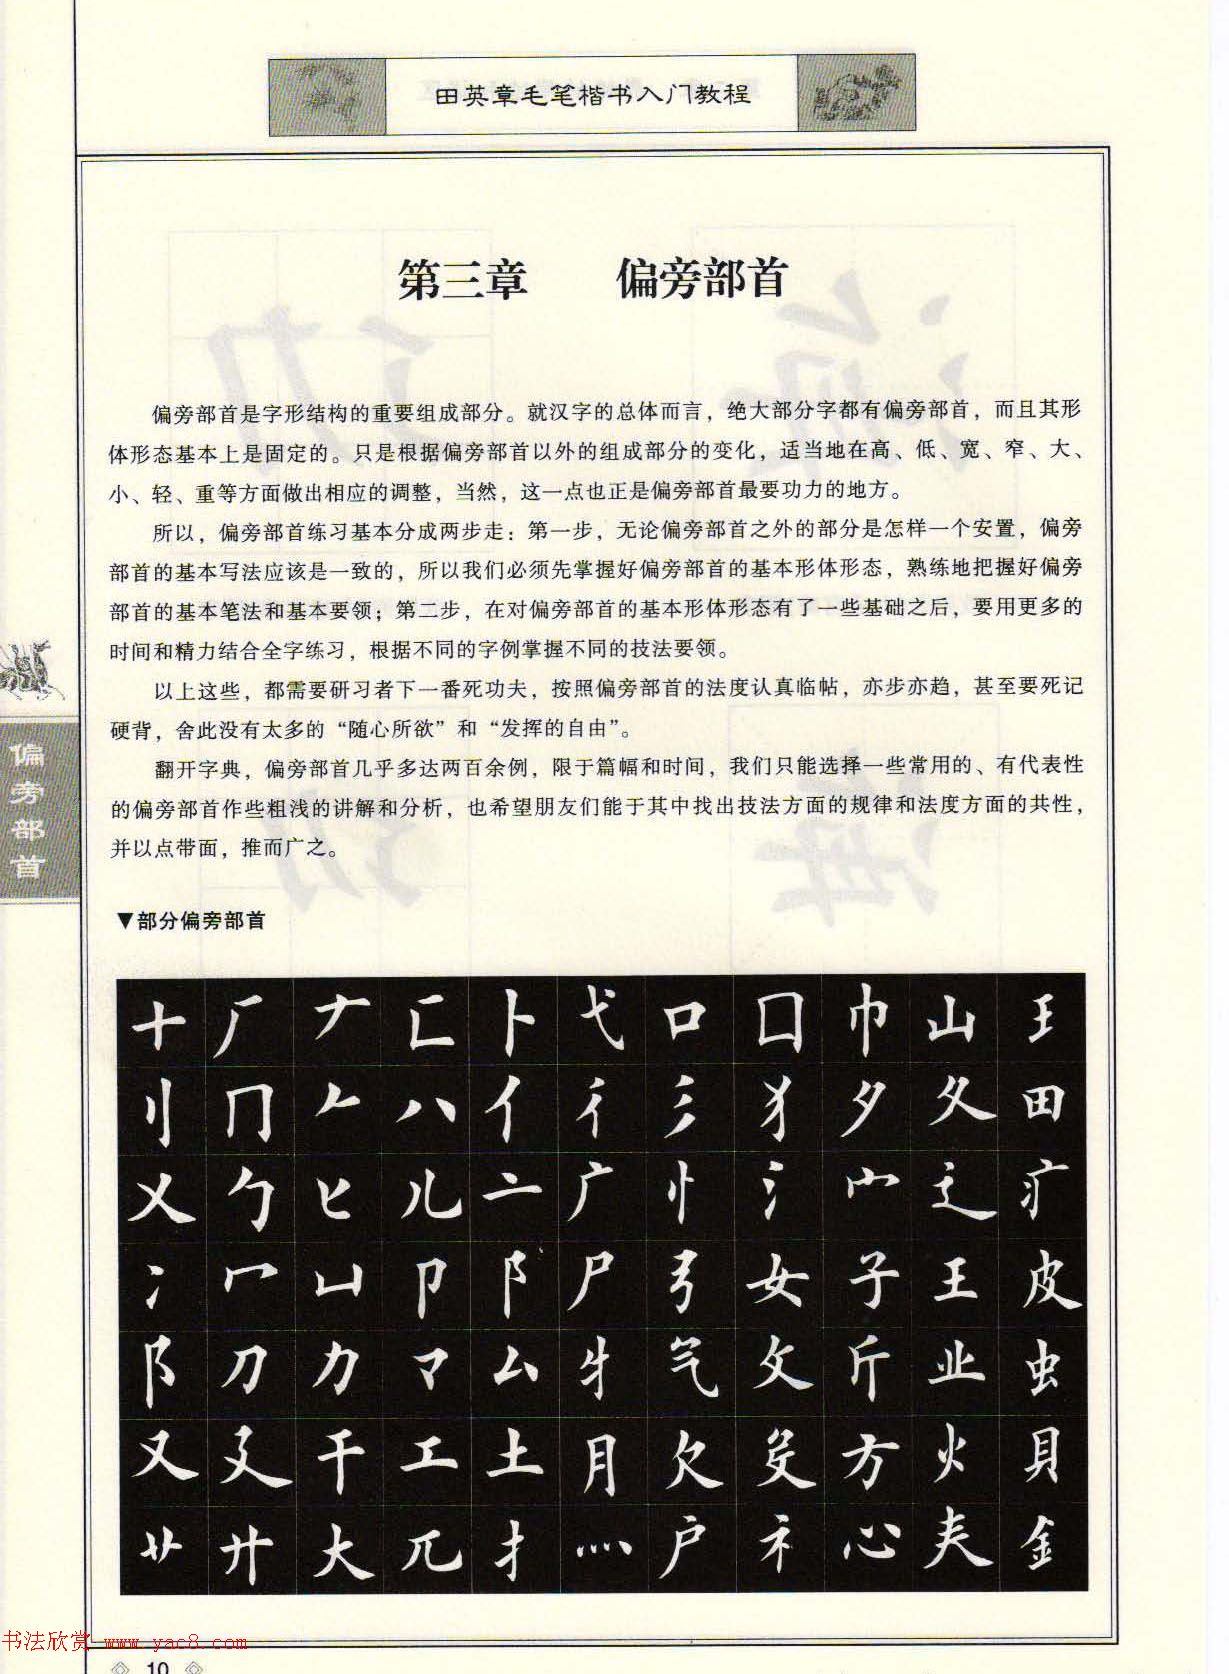 田英章毛笔楷书入门教程
第三章 偏旁部首
偏旁部首是字形结构的重要组成部分。就汉字的总体而言，绝大部分字都有偏旁部首，而且其形
体形态基本上是固定的。只是根据偏旁部首以外的组成部分的变化，适当地在高、低、宽、窄、大、
小、轻、重等方面做出相应的调整，当然，这一点也正是偏旁部首最要功力的地方。
所以，偏旁部首练习基本分成两步走：第一步，无论偏旁部首之外的部分是怎样一个安置，偏旁
部首的基本写法应该是一致的，所以我们必须先掌握好偏旁部首的基本形体形态，熟练地把握好偏旁
部首的基本笔法和基本要领；第二步，在对偏旁部首的基本形体形态有了一些基础之后，要用更多的
时间和精力结合全字练习，根据不同的字例掌握不同的技法要领。
以上这些，都需要研习者下一番死功夫，按照偏旁部首的法度认真临帖，亦步亦趋，甚至要死记
硬背，舍此没有太多的“随心所欲”和“发挥的自由”。
翻开字典，偏旁部首几乎多达两百余例，限于篇幅和时间，我们只能选择一些常用的、有代表性
的偏旁部首作些粗浅的讲解和分析，也希望朋友们能于其中找出技法方面的规律和法度方面的共性，
并以点带面，推而广之。
偏旁部首
▼部分偏旁部首
十 厂 ナ 匚 卜 弋 口 囗 巾 山 王
刂 冂 𠂉 八 亻 彳 彡 犭 夕 夂 田
乂 勹 匕 儿 亠 广 忄 氵 宀 辶 疒
冫 冖 凵 卩 阝 尸 弓 女 子 王 皮
阝 刀 力 龴 厶 牜 气 攵 斤 业 虫
又 廴 干 工 土 月 欠 殳 方 火 貝
艹 廾 大 兀 扌 灬 户 礻 心 𡗗 金
书法欣赏 www.yac8.com
10